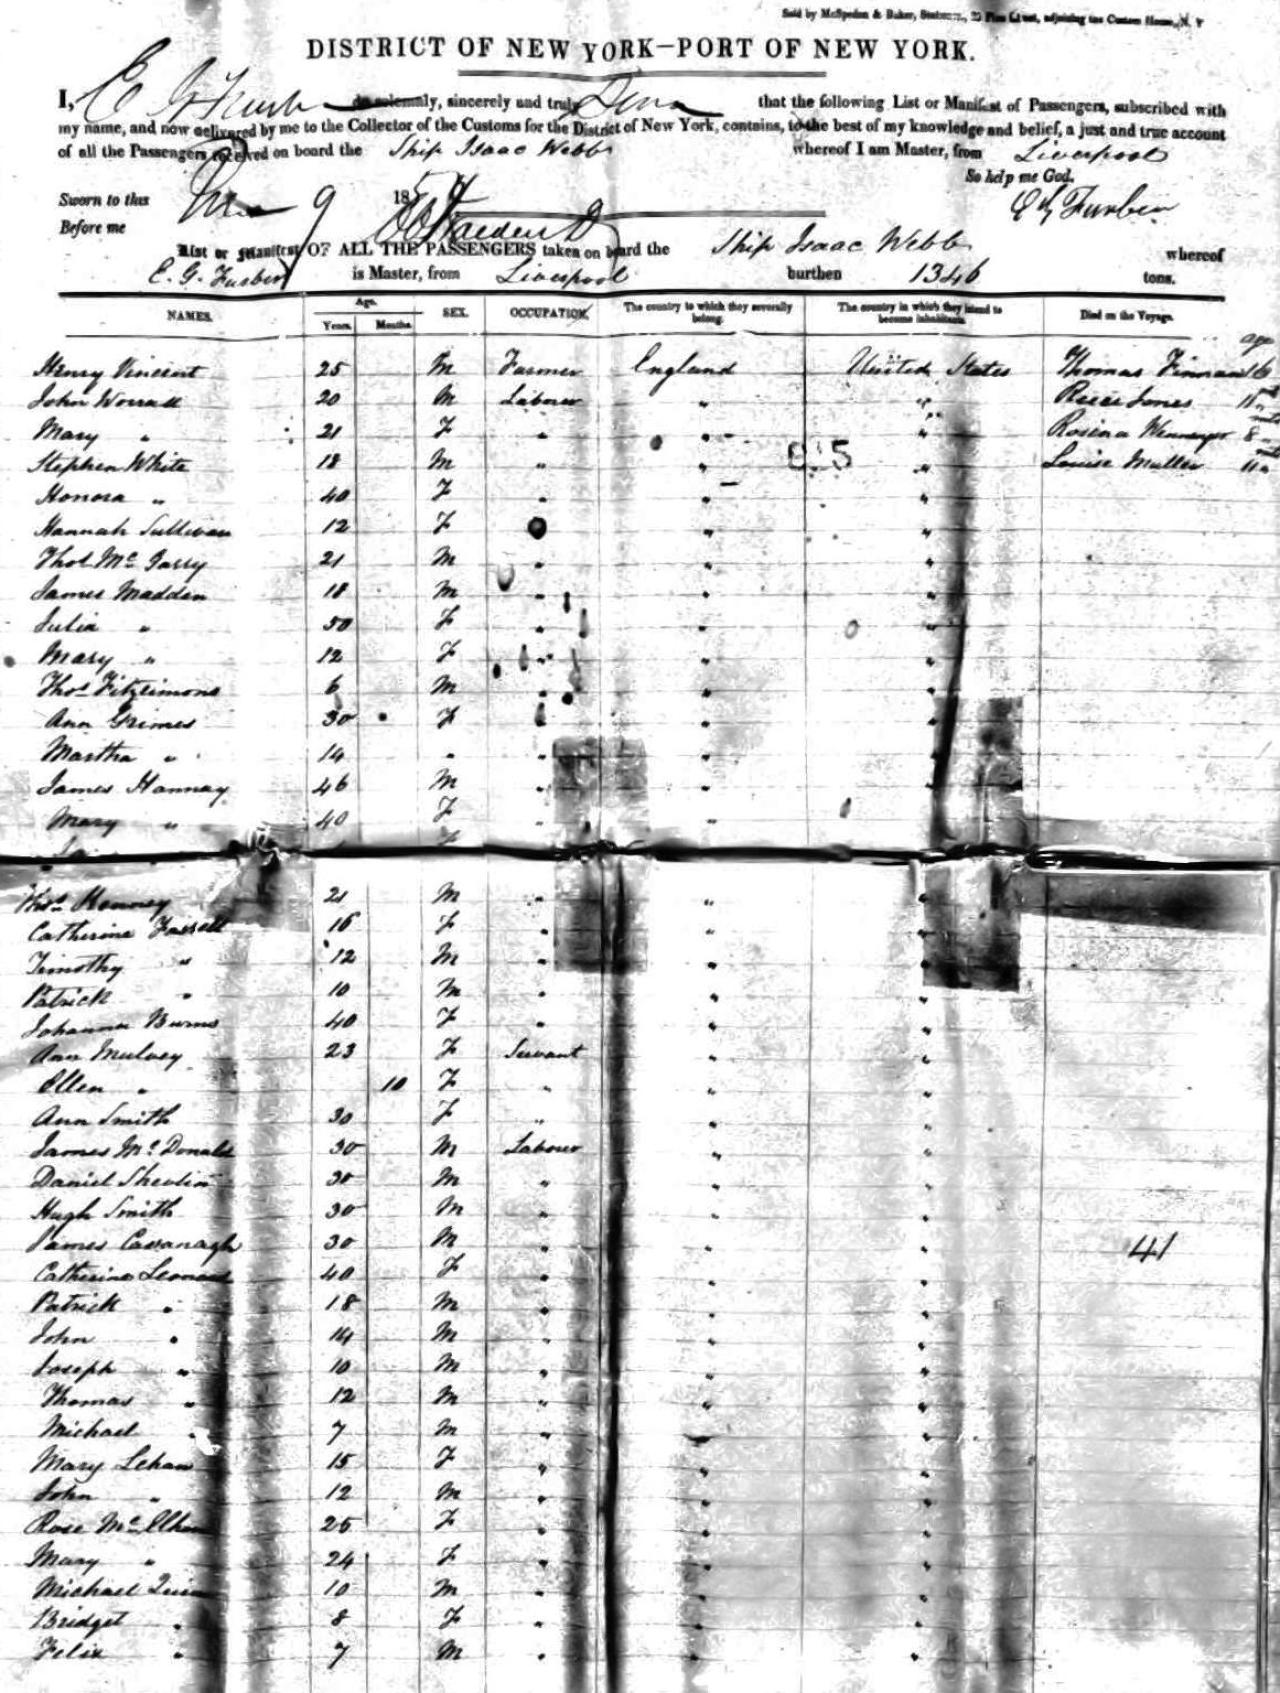 Sold by McSpedon & Baker, Stationers, 25 Pine Street, adjoining the Custom House, N. Y
DISTRICT OF NEW YORK—PORT OF NEW YORK.
I, E G Furber do solemnly, sincerely and truly that the following List or Manifest of Passengers, subscribed with
my name, and now delivered by me to the Collector of the Customs for the District of New York, contains, to the best of my knowledge and belief, a just and true account
of all the Passengers received on board the Ship Isaac Webb whereof I am Master, from Liverpool
So help me God.
Sworn to this 9 185 E G Furber
Before me
List or Manifest OF ALL THE PASSENGERS taken on board the Ship Isaac Webb whereof
E. G. Furber is Master, from Liverpool burthen 1346 tons.
NAMES. Age. Years. Months. SEX. OCCUPATION. The country to which they severally belong. The country in which they intend to become inhabitants. Died on the Voyage.
age
Henry Vincent 25 M Farmer England United States Thomas Finnan 16
John Worrall 20 M Labourer " " Reece Jones 11
Mary " 21 F " " " Rosina 8
Stephen White 18 M " " " Louise Muller 11
Honora " 40 F " " "
Hannah Sullivan 12 F " " "
Thos Mc Garry 21 M " " "
James Madden 18 M " " "
Julia " 50 F " " "
Mary " 12 F " " "
Thos Fitzsimons 6 M " " "
Ann Grimes 30 F " " "
Martha " 14 " " " "
James Hannay 46 M " " "
Mary " 40 F " " "
Thos Kenney 21 M " " "
Catherine Farrell 16 F " " "
Timothy " 12 M " " "
Patrick " 10 M " " "
Johanna Burns 40 F " " "
Ann Mulvey 23 F Servant " "
Ellen " 10 F " " "
Ann Smith 30 F " " "
James Mc Donald 30 M Labourer " "
Daniel Shevlin 30 M " " "
Hugh Smith 30 M " " "
James Cavanagh 30 M " " " 41
Catherine Leonard 40 F " " "
Patrick " 18 M " " "
John " 14 M " " "
Joseph " 10 M " " "
Thomas " 12 M " " "
Michael " 7 M " " "
Mary Lehan 15 F " " "
John " 12 M " " "
Rose Mc 25 F " " "
Mary " 24 F " " "
Michael Quinn 10 M " " "
Bridget " 8 F " " "
Felix " 7 M " " "